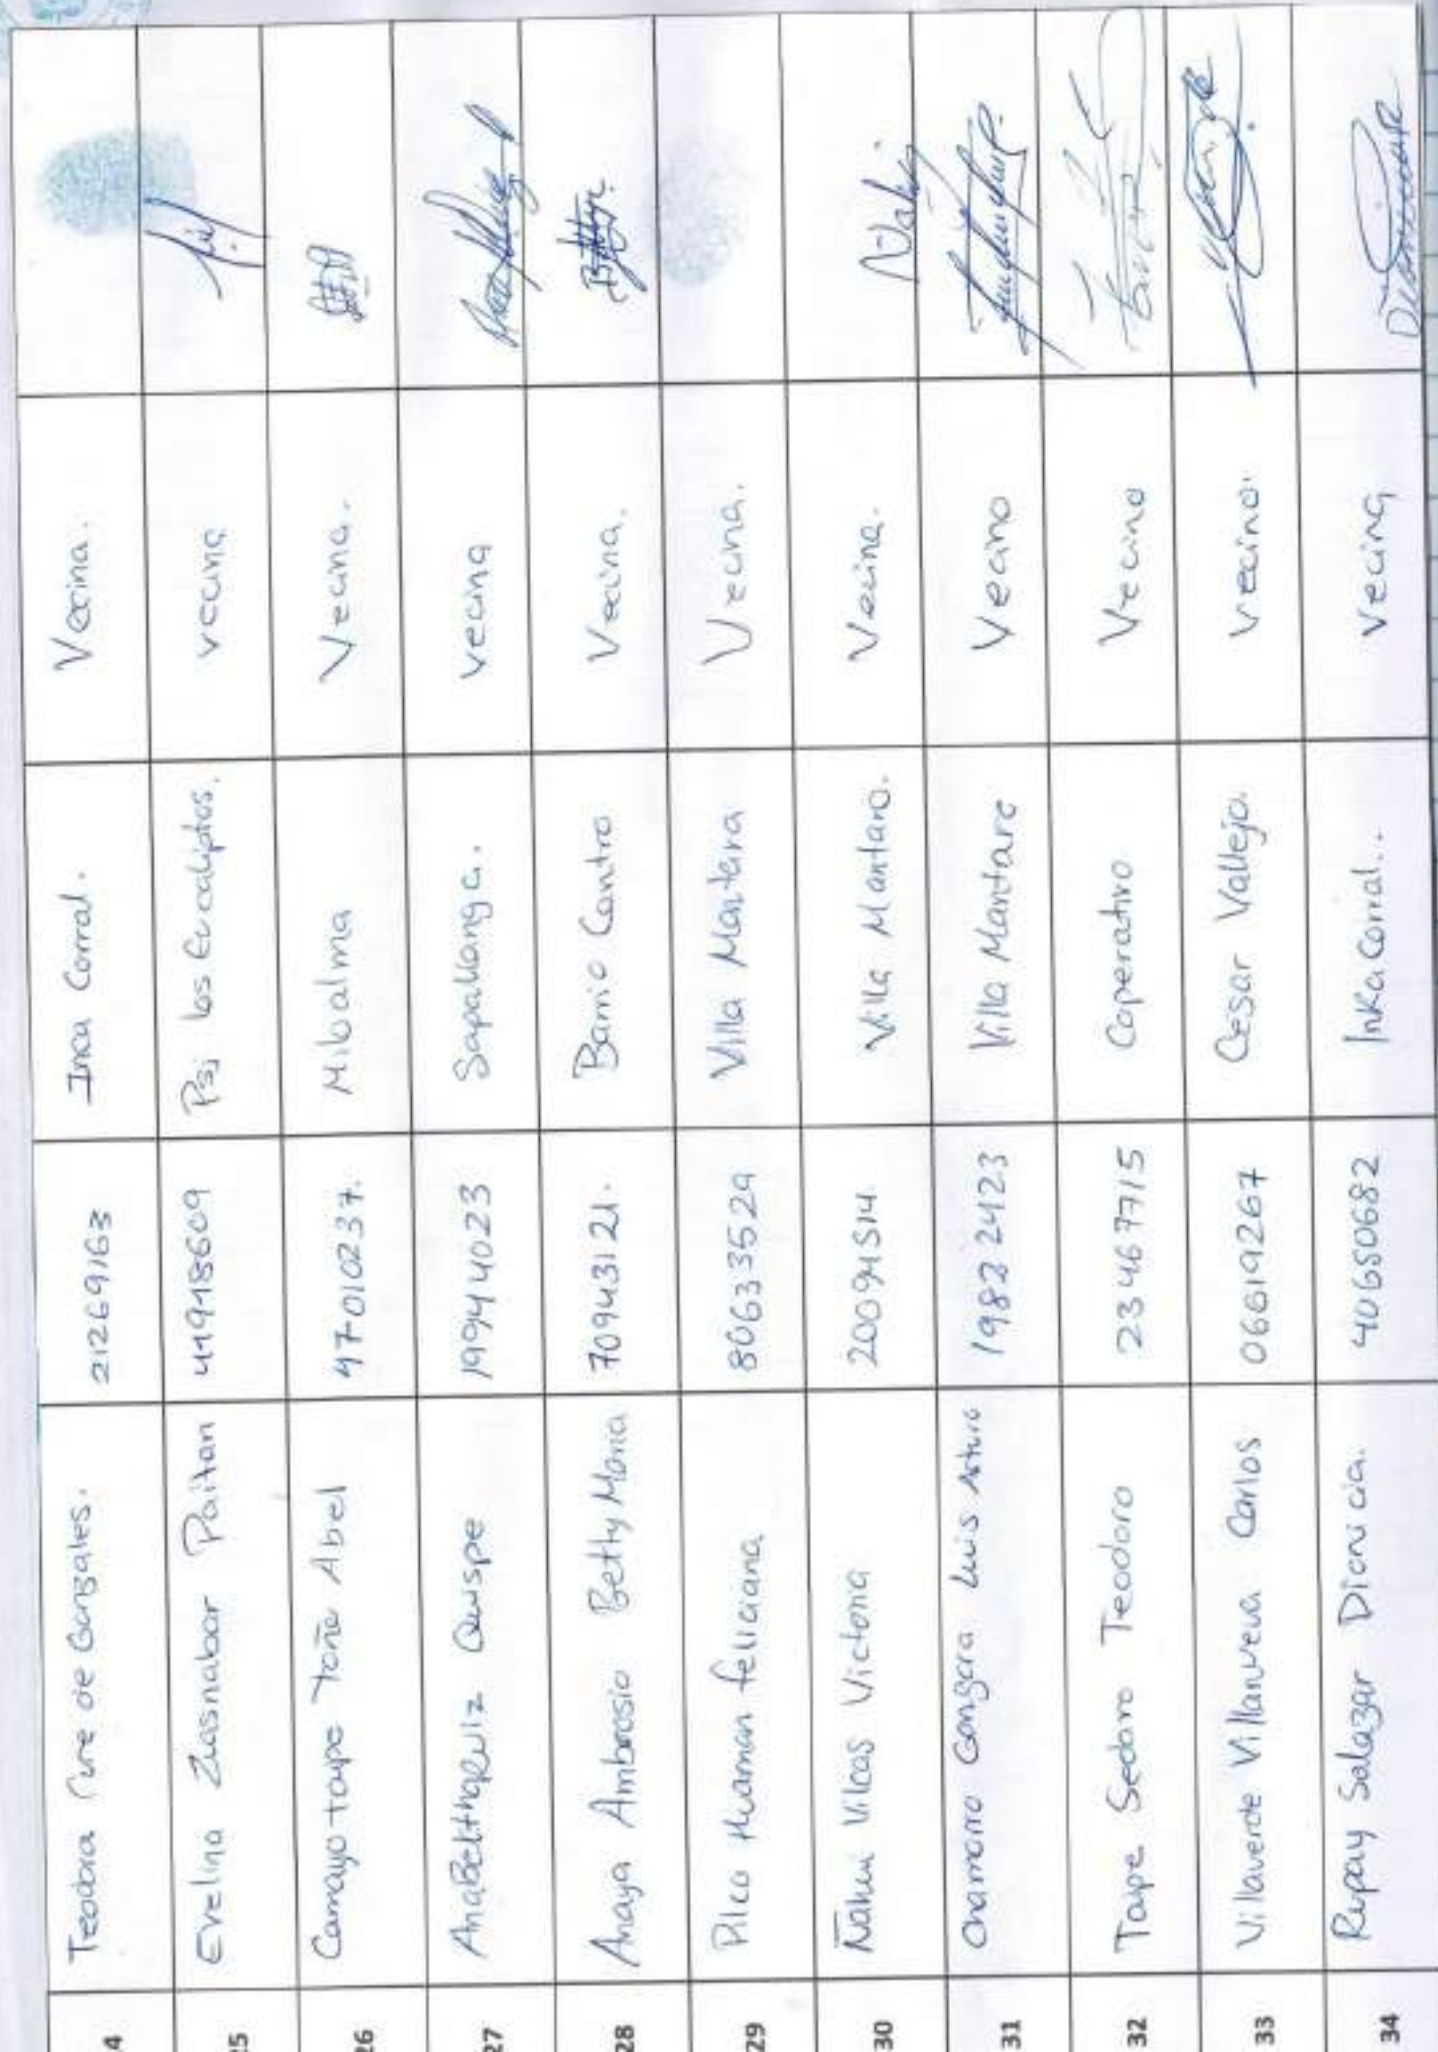 4 Teodora Cure de Gonzales. 21269163 Inca Corral. Vecina.
25 Evelina Zuasnabar Paitan 41918609 Psj los Eucaliptos. vecina
26 Camayo taype toña Abel 47010237. Mibalma Vecina.
27 Ana Beltha Ruiz Quispe 19944023 Sapallanga. vecina
28 Anaya Ambrosio Betty Maria 70943121. Barrio Centro Vecina.
29 Pilco Huaman feliciana 80633529 Villa Mantara Vecina.
30 Ñahui Vilcas Victoria 20091514. Villa Mantaro. Vecina. Ñahui
31 Chamorro Gongora Luis Arturo 19822423 Villa Mantaro Vecino
32 Taipe Sedano Teodoro 23467715 Coperativo Vecino
33 Villaverde Villanueva Carlos 06619267 Cesar Vallejo. vecino.
34 Rupay Salazar Dionicia. 40650682 Inka Corral.. vecina